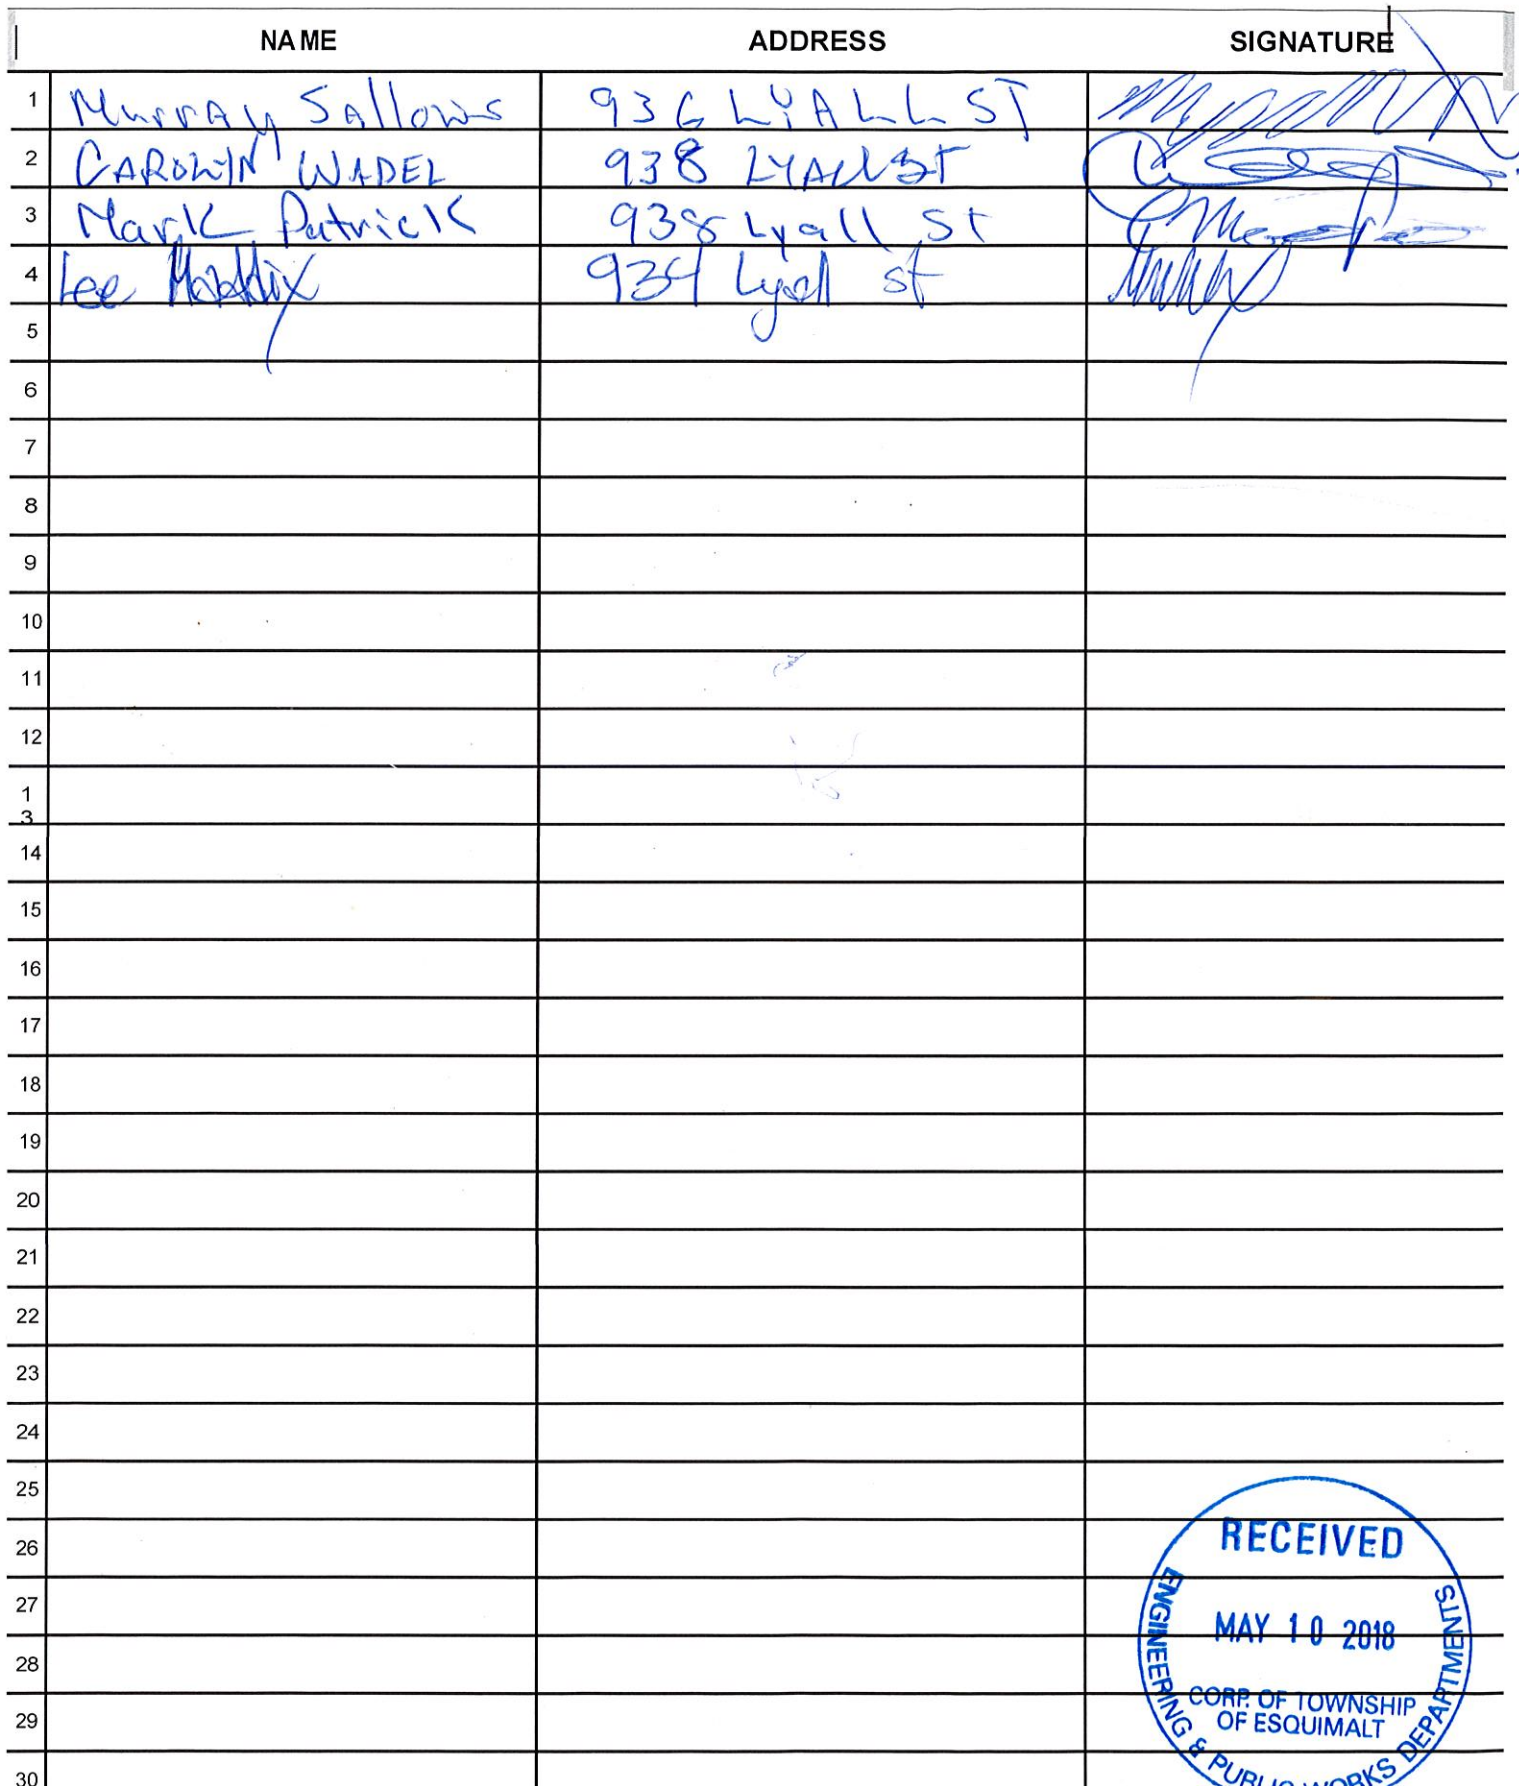 NAME ADDRESS SIGNATURE
1 Murray Sallows 936 LYALL ST
2 CAROLYN WADEL 938 LYALL ST
3 Mark Patrick 938 Lyall St
4 Lee 934 Lyall st
5
6
7
8
9
10
11
12
13
14
15
16
17
18
19
20
21
22
23
24
25
26
27
28
29
30
RECEIVED
MAY 10 2018
CORP. OF TOWNSHIP
OF ESQUIMALT
ENGINEERING & PUBLIC WORKS DEPARTMENTS